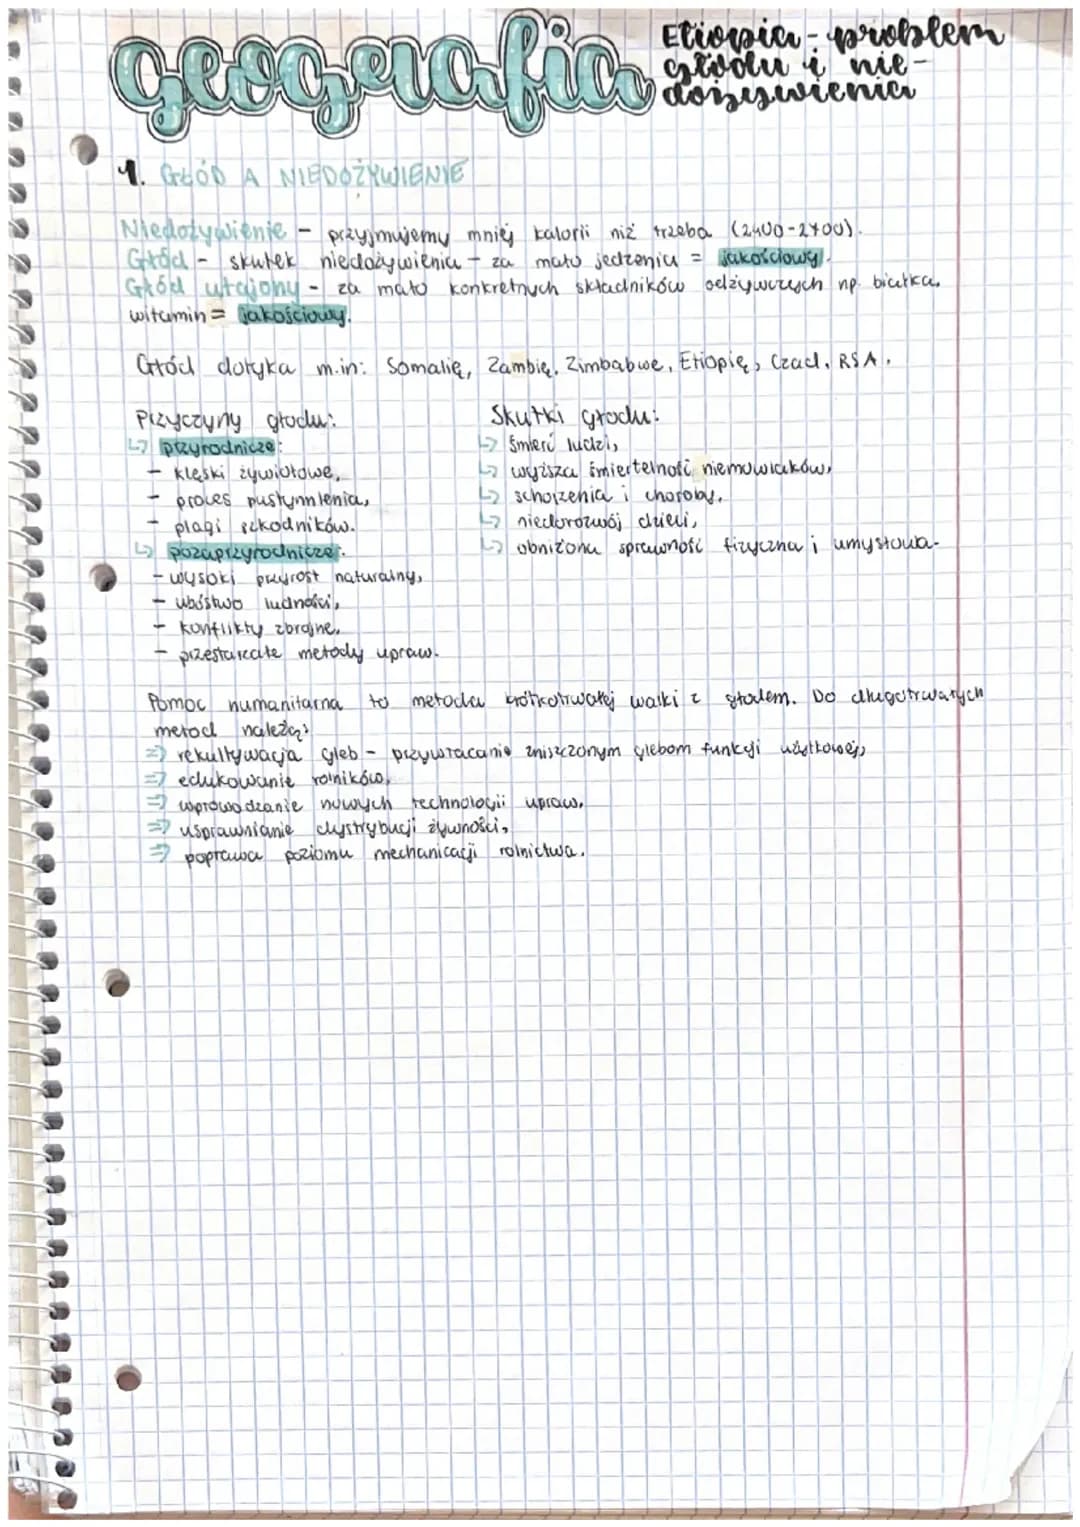 geografia
Etiopia - problem
głodu i nie-
dożywienia
1. GŁÓD A NIEDOŻYWIENIE
Niedożywienie - przyjmujemy mniej kalorii niż trzeba (2400-2700).
Głód - skutek niedożywienia - za mało jedzenia = jakościowy.
Głód utajony - za mało konkretnych składników odżywczych np. białka,
witamin = jakościowy.
Głód dotyka m.in: Somalię, Zambię, Zimbabwe, Etiopię, Czad, RSA.
Przyczyny głodu:
↳ przyrodnicze:
- klęski żywiołowe,
- proces pustynnienia,
- plagi szkodników.
↳ pozaprzyrodnicze:
- wysoki przyrost naturalny,
- ubóstwo ludności,
- konflikty zbrojne,
- przestarzałe metody upraw.
Skutki głodu:
↳ śmierć ludzi,
↳ wyższa śmiertelność niemowlaków,
↳ schorzenia i choroby,
↳ niedorozwój dzieci,
↳ obniżona sprawność fizyczna i umysłowa.
Pomoc humanitarna to metoda krótkotrwałej walki z głodem. Do długotrwałych
metod należą:
⇒ rekultywacja gleb - przywracanie zniszczonym glebom funkcji użytkowej,
⇒ edukowanie rolników,
⇒ wprowadzanie nowych technologii upraw,
⇒ usprawnianie dystrybucji żywności,
⇒ poprawa poziomu mechanicacji rolnictwa.